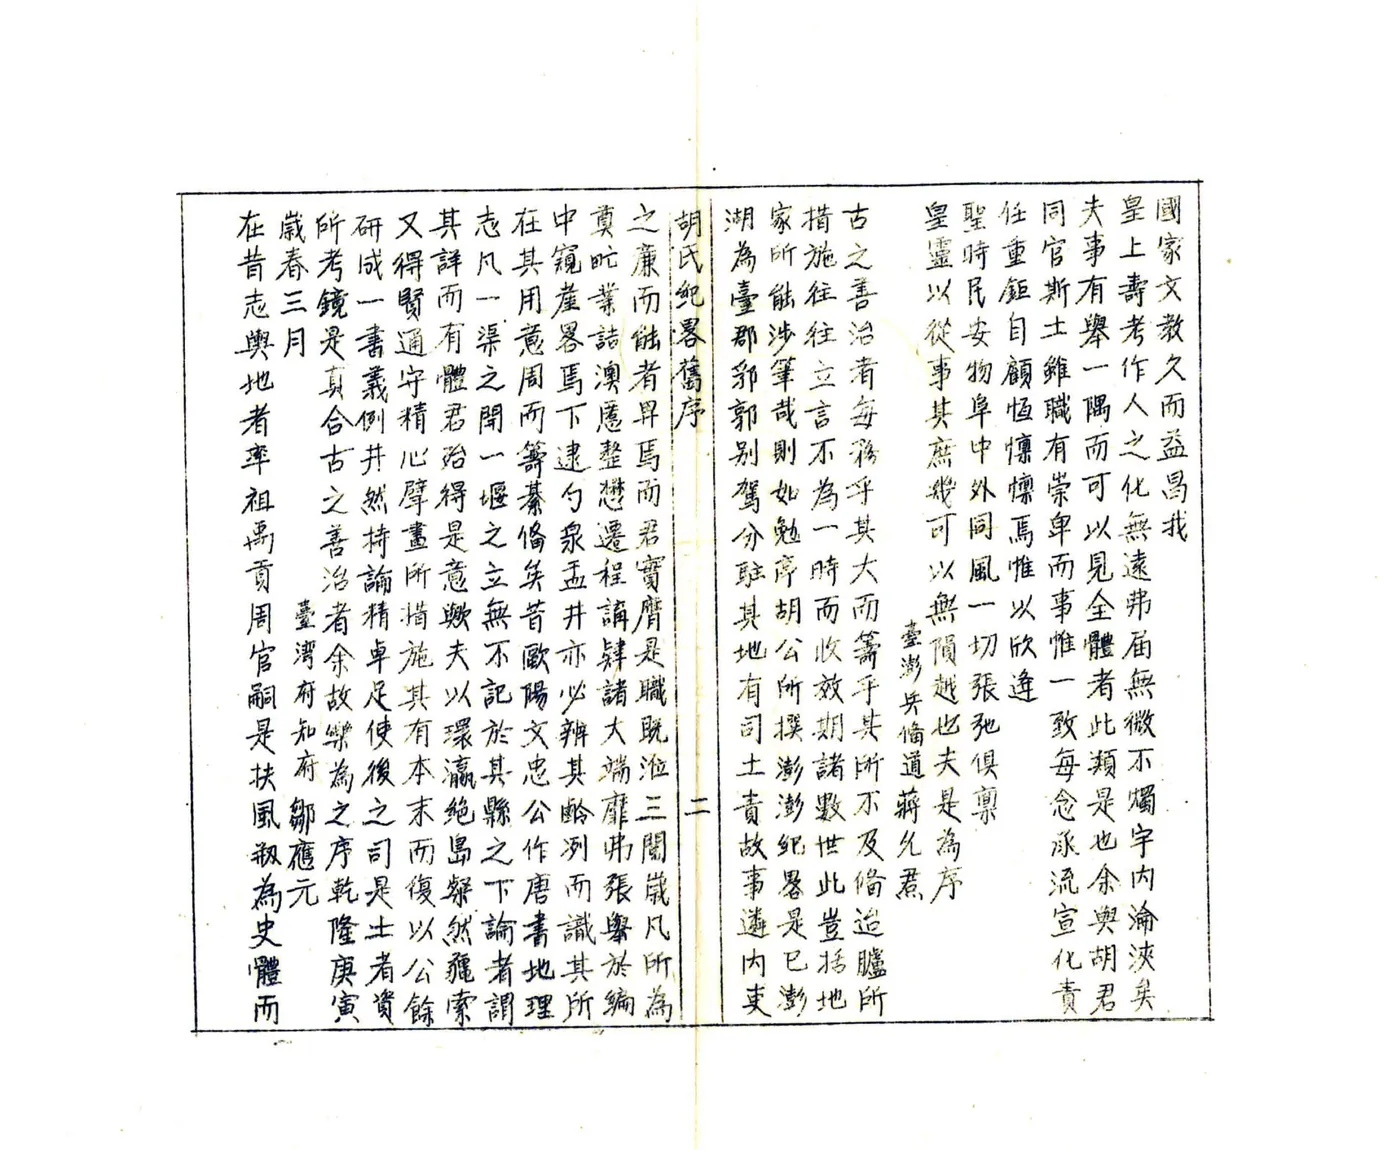 國家文教久而益昌我
皇上壽考作人之化無遠弗届無微不燭宇內淪浹矣
夫事有舉一隅而可以見全體者此類是也余與胡君
同官斯土雖職有崇卑而事惟一致每念承流宣化責
任重鉅自顧恆懍懍焉惟以欣逢
聖時民安物阜中外同風一切張弛俱稟
皇靈以從事其庶幾可以無隕越也夫是為序
臺澎兵備道蔣允焄
古之善治者每務乎其大而籌乎其所不及俻迨臚所
措施往往立言不為一時而收效期諸數世此豈括地
家所能涉筆哉則如勉亭胡公所撰澎澎紀畧是已澎
湖為臺郡郛郭别駕分駐其地有司土責故事遴內吏
胡氏紀畧舊序
二
之廉而能者畀焉而君實膺是職既涖三閱歲凡所為
奠甿業詰澳慝整懋遷程講肄諸大端靡弗張舉於編
中窺崖畧焉下逮勺泉盂井亦必辨其齡冽而識其所
在其用意周而籌綦俻矣昔歐陽文忠公作唐書地理
志凡一渠之開一堰之立無不記於其縣之下論者謂
其詳而有體君殆得是意歟夫以環瀛絕島粲然瓏索
又得賢通守精心擘畫所措施其有本末而復以公餘
研成一書義例井然持論精卓足使後之司是土者資
所考鏡是真合古之善治者余故樂為之序乾隆庚寅
歲春三月
臺灣府知府鄒應元
在昔志輿地者率祖禹貢周官嗣是扶風剏為史體而